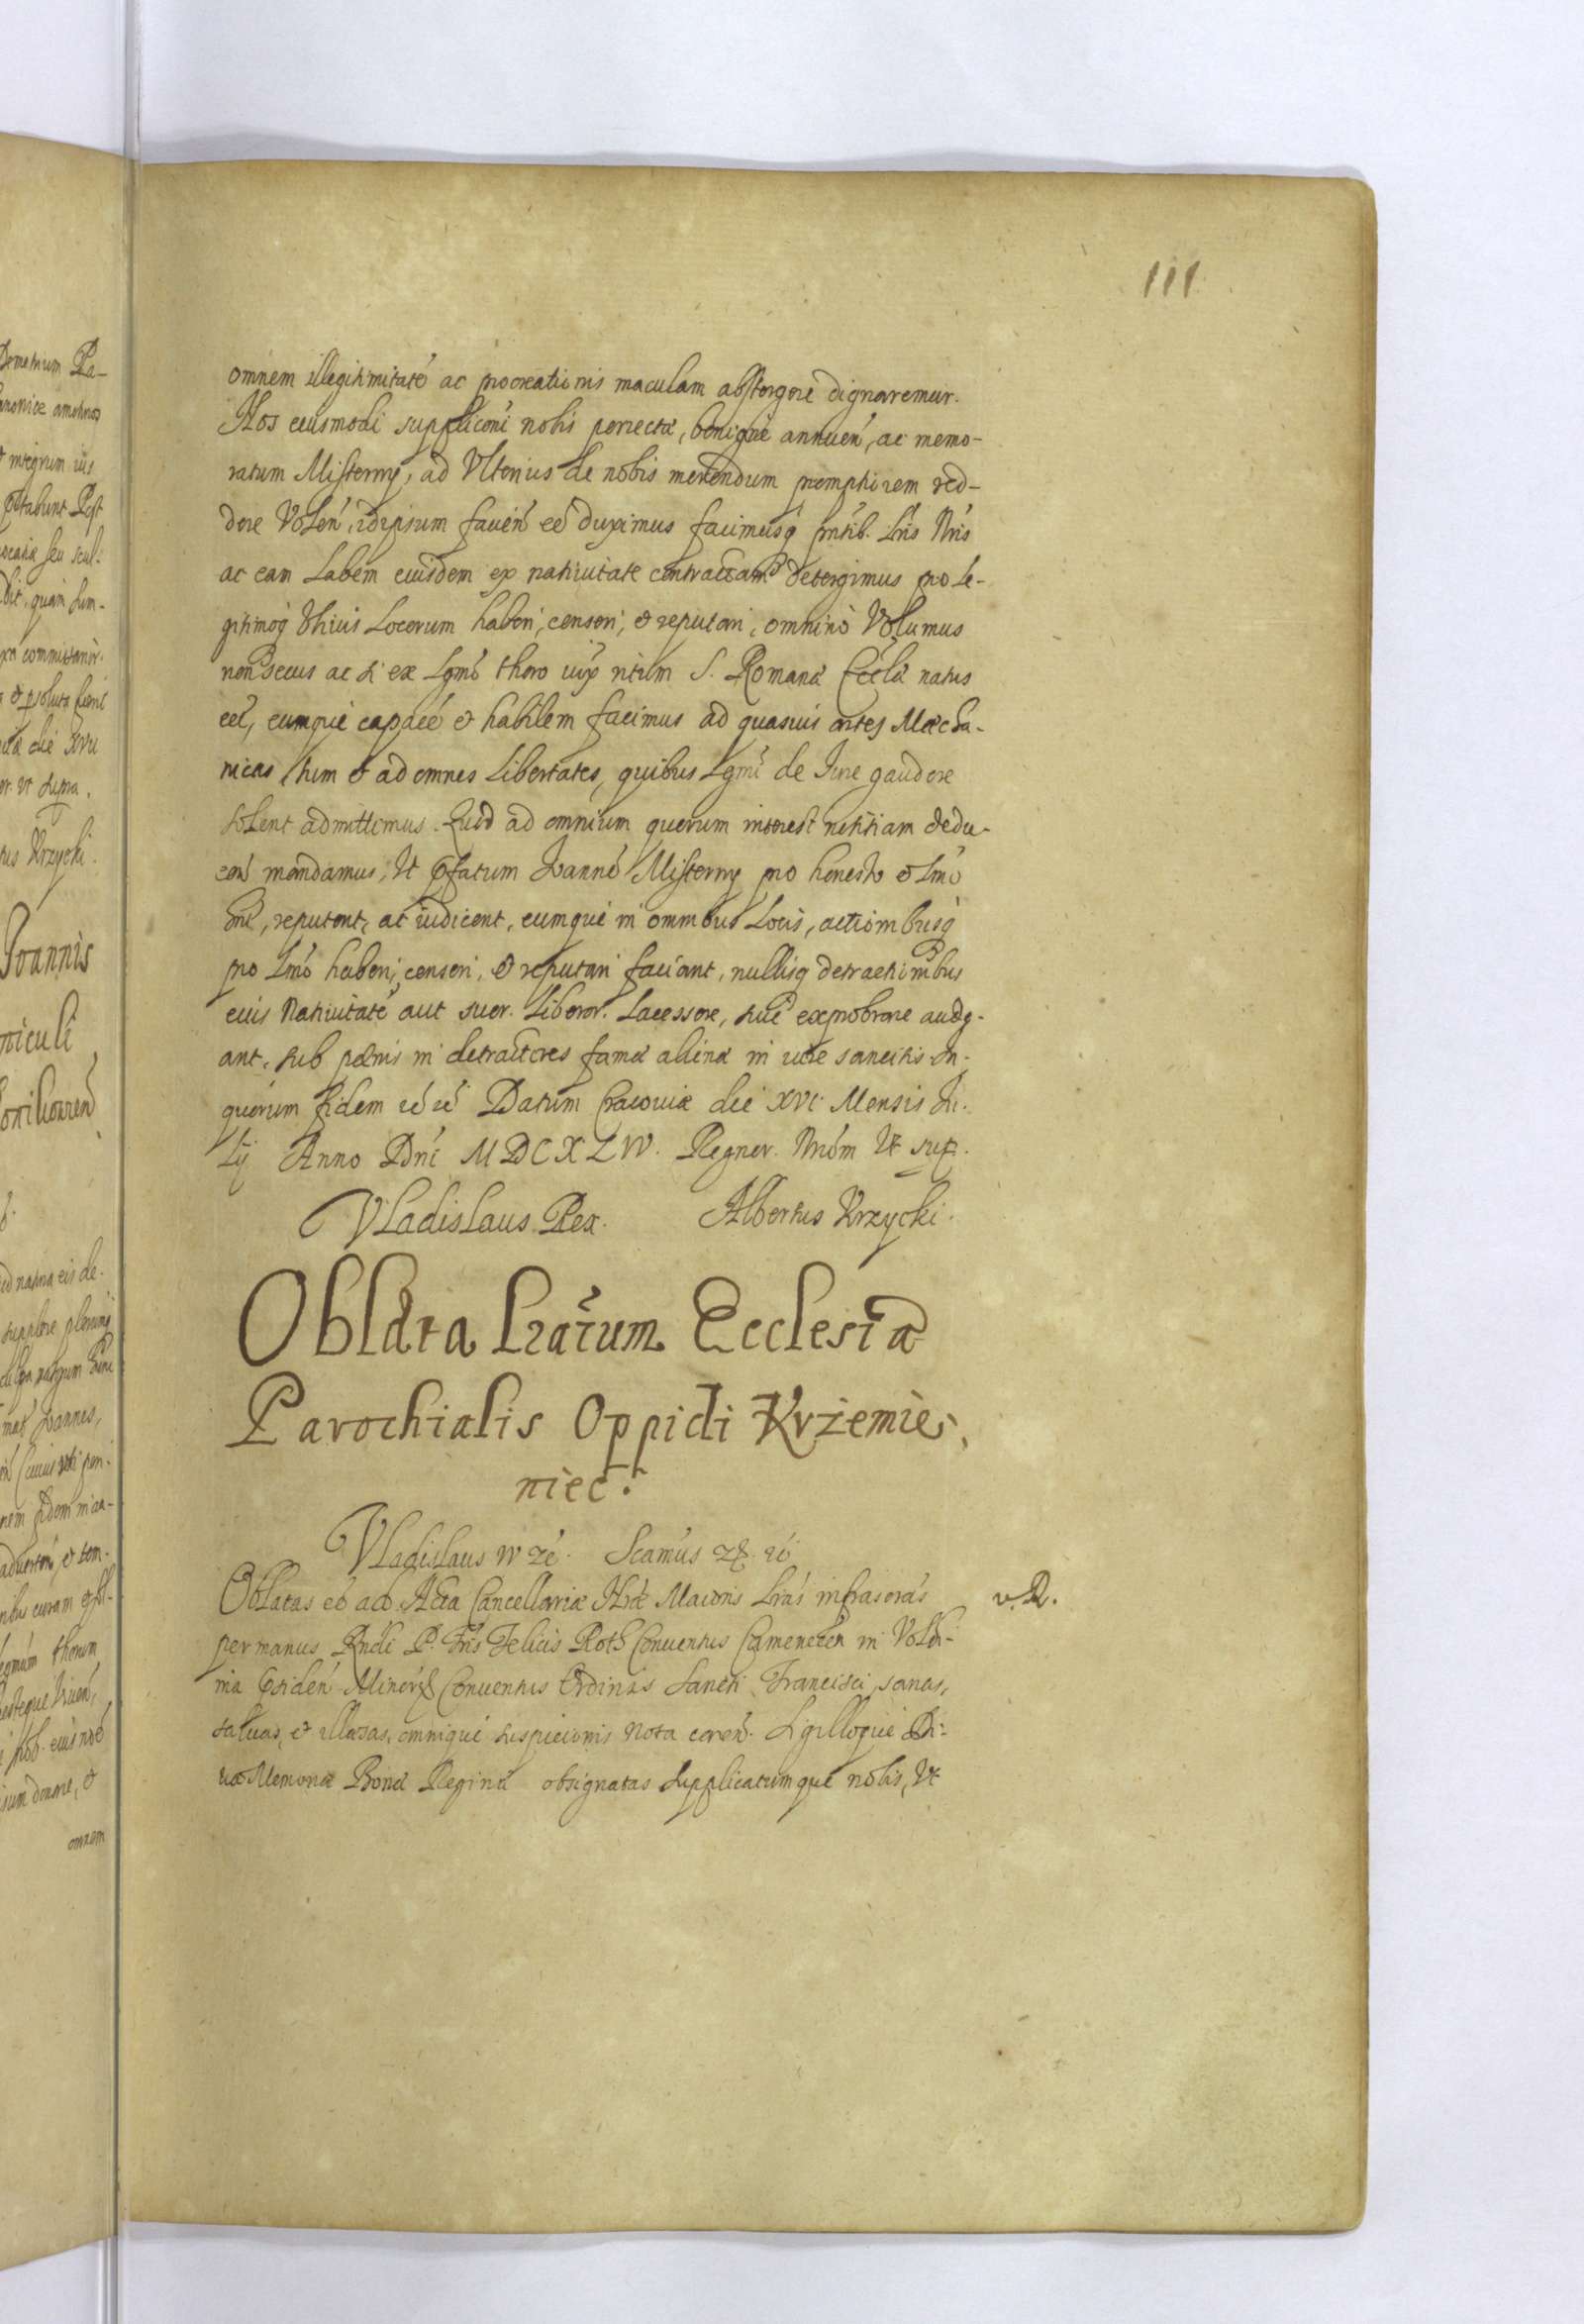 111
omnem illegitimitaté ac procreationis maculam abstergere dignaremur.
Nos eiusmodi suppliconi nobis porrectæ, benigne annuen, ac memo-
ratum Misterny, ad Vlterius de nobis merendum promptiorem red-
dere Volen, idipsum facien eé duximus facimusq pntib. Lris Nris
ac eam Labem eiusdem ex natiuitate contractam detergimus pro Le-
gitimoq Vbiuis Locorum haberi, censeri, et reputari, omninò Volumus
non secus ac si ex Lgmo thoro iuxª ritum S. Romanæ Eccłæ natus
eét, eumque capacé et habilem facimus ad quasuis artes Mecha-
nicas tum et ad omnes Libertates, quibus Lgmi de Iure gaudere
solent admittimus. Quod ad omnium quorum interest notitiam dedu-
cen mandamus, Vt pfatum Ioanné Misterny pro honesto et Lmo
hné, reputent, ac iudicent, eumque in omnibus Locis, actionibusq
pro Lmo haberi, censeri, et reputari faciant, nullisq detractionibus
eius Natiuitaté aut suor. Liberor. Lacessere, siue exprobrare aude-
ant, sub pœnis in detractores famæ alienæ in iure sancitis. In
quorum fidem ré ré Datum Cracouiæ die XVI. Mensis Iu-
Lij Anno Dni MDCXLIV. Regnor. Nrorum Vt sup.
Vladislaus Rex. Albertus Krzycki.
Oblata Lrarum Ecclesiæ
Parochialis Oppidi Krzemie-
niec.
Vladislaus IV ré. Scamus ré
Oblatas eé ad Acta Cancellariæ Nræ Maioris Lras infrascras v. R.
per manus Rndi P. Fris Felicis Roth Conuentus Cameneceń in Volhi-
nia Gvidén Minorum Conuentus Ordinis Sancti Francisci, sanas,
saluas, et illæsas, omnique suspicionis nota caren. Sigilloque Di-
uæ Memoriæ Bonæ Reginæ obsignatas supplicatumque nobis, Vt